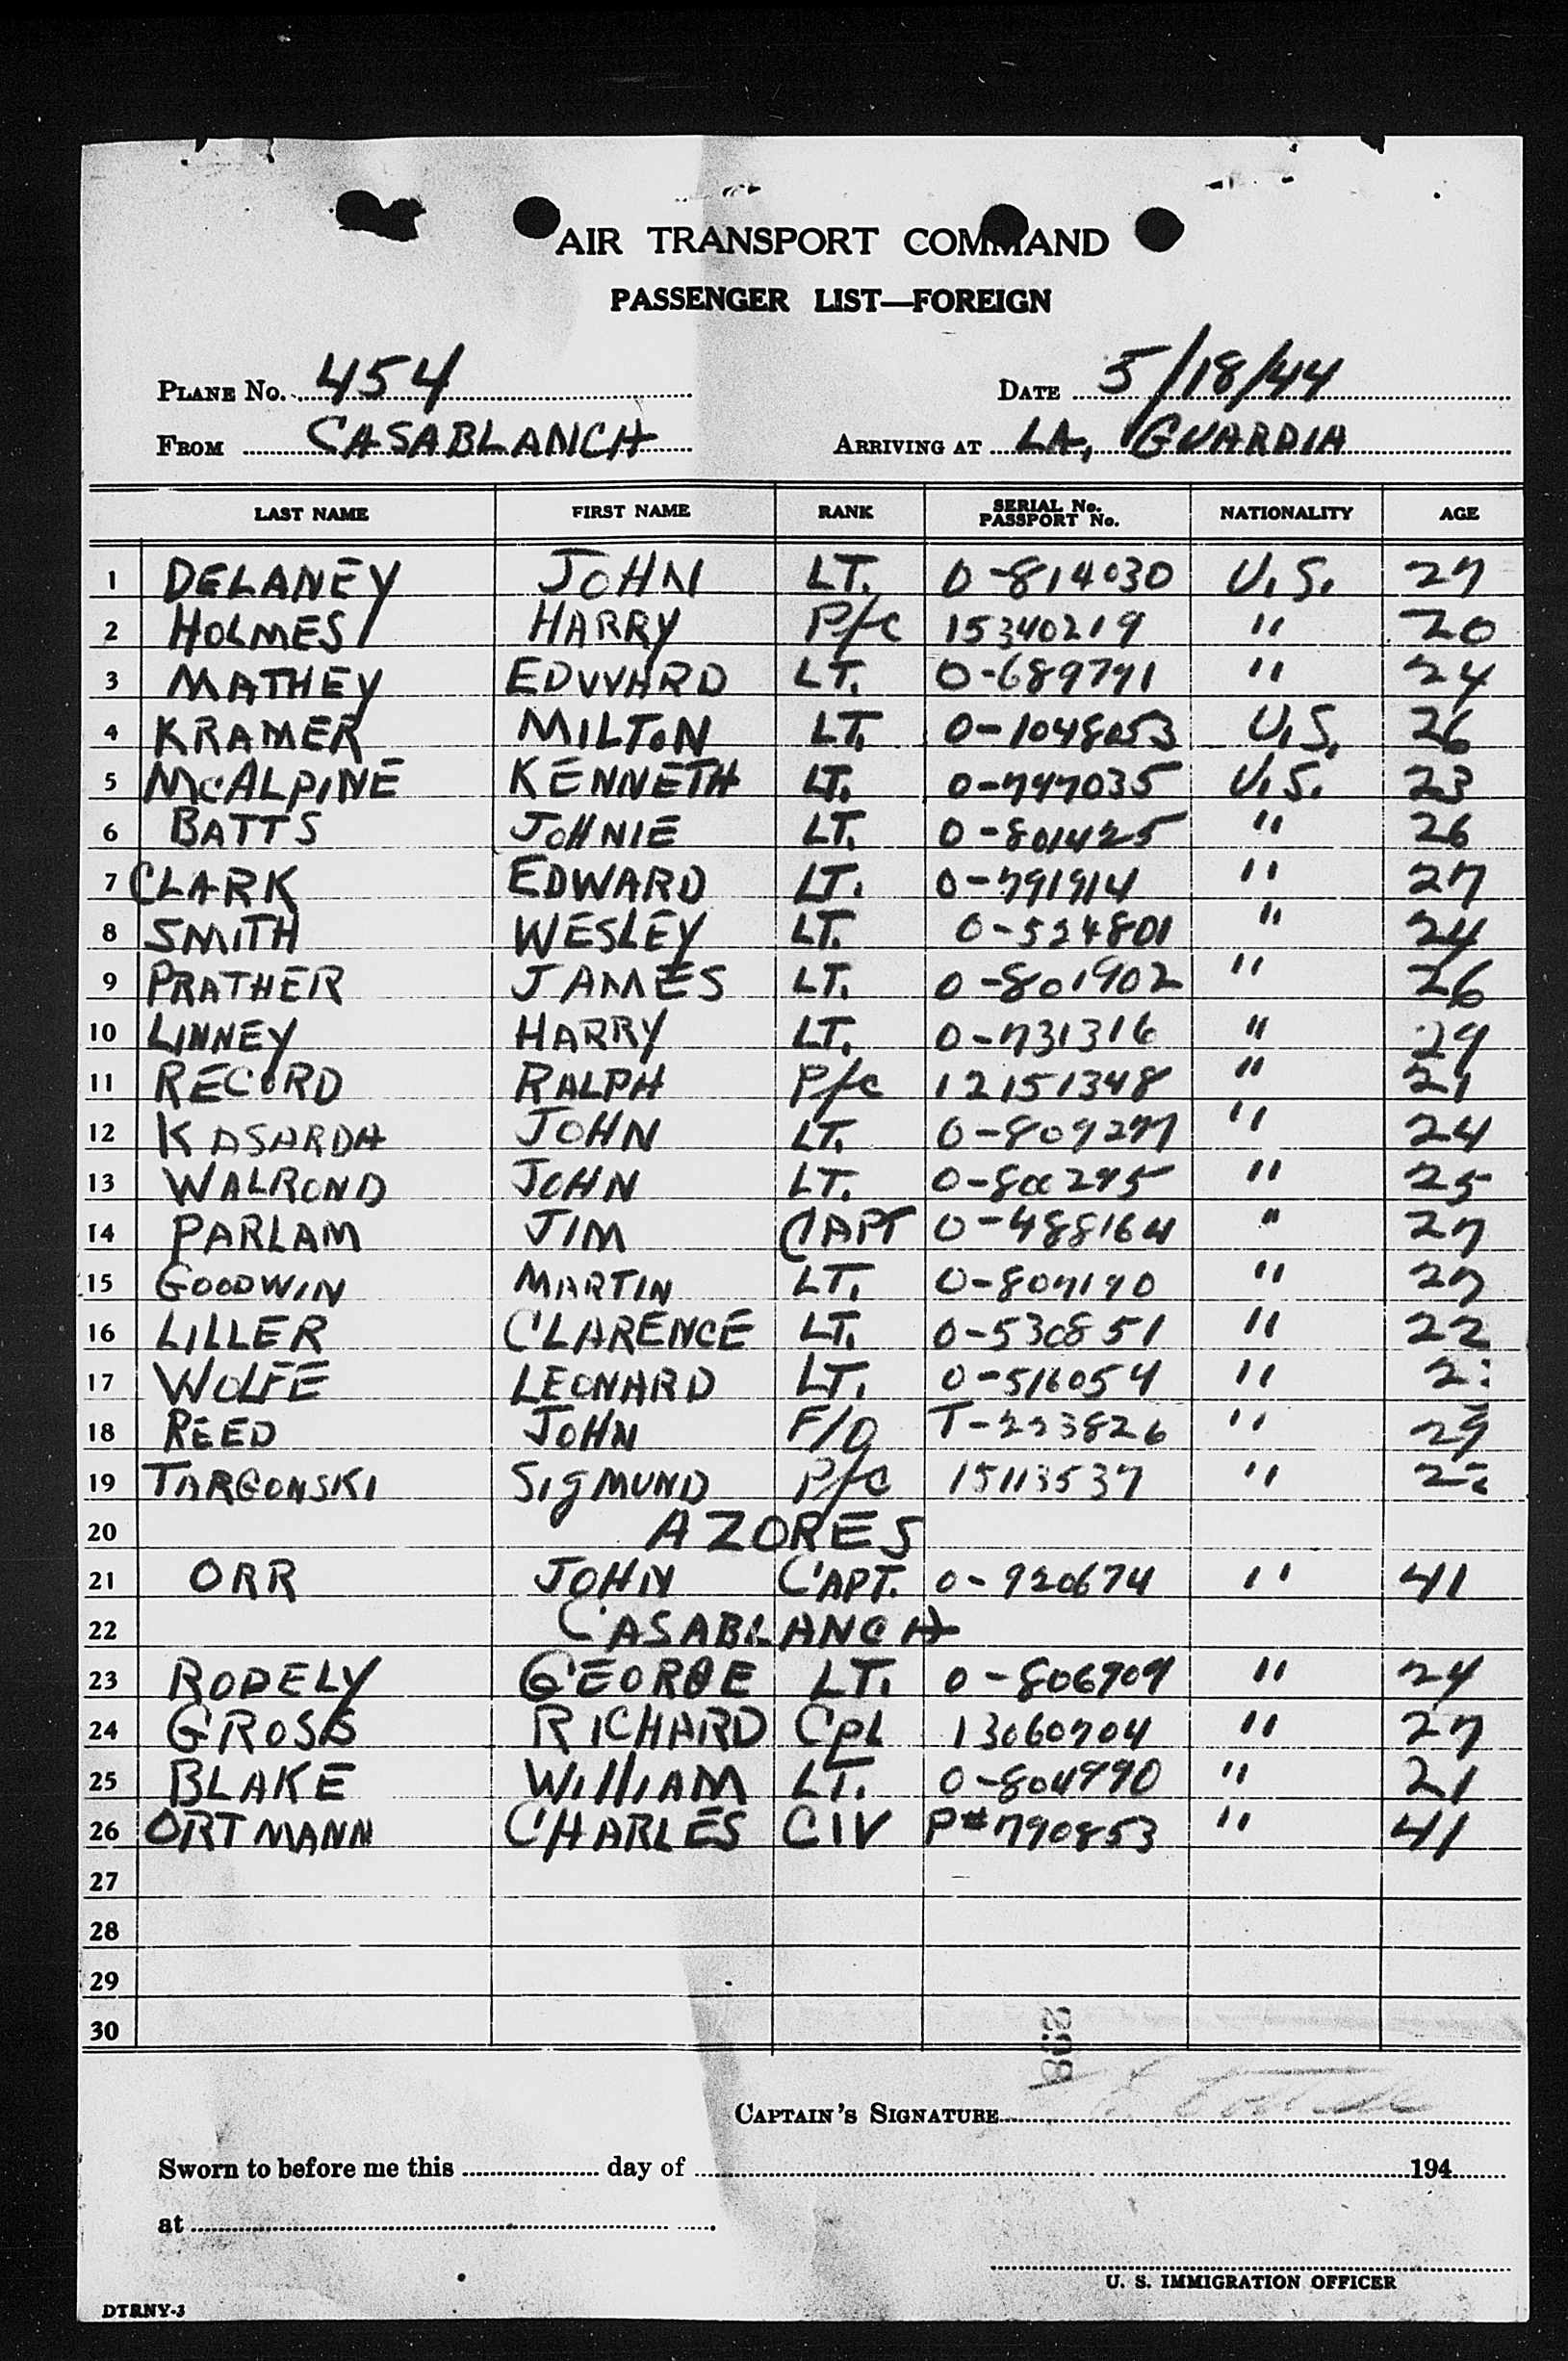 AIR TRANSPORT COMMAND
PASSENGER LIST—FOREIGN
PLANE No. 454 DATE 5/18/44
FROM CASABLANCA ARRIVING AT LA, GUARDIA
LAST NAME FIRST NAME RANK SERIAL No. PASSPORT No. NATIONALITY AGE
1 DELANEY JOHN LT. O-814030 U.S. 27
2 HOLMES HARRY P/c 15340219 " 20
3 MATHEY EDWARD LT. O-689791 " 24
4 KRAMER MILTON LT. O-1048053 U.S. 26
5 McALPINE KENNETH LT. O-747035 U.S. 23
6 BATTS JOHNIE LT. O-801425 " 26
7 CLARK EDWARD LT. O-791914 " 27
8 SMITH WESLEY LT. O-524801 " 24
9 PRATHER JAMES LT. O-801902 " 26
10 LINNEY HARRY LT. O-731316 " 29
11 RECORD RALPH P/c 12151348 " 21
12 KASARDA JOHN LT. O-809277 " 24
13 WALROND JOHN LT. O-800295 " 25
14 PARLAM JIM CAPT O-488164 " 27
15 GOODWIN MARTIN LT. O-807190 " 27
16 LILLER CLARENCE LT. O-530851 " 22
17 WOLFE LEONARD LT. O-516054 "
18 REED JOHN F/O T-223826 " 29
19 TARGONSKI SIGMUND P/c 15113537 "
20 AZORES
21 ORR JOHN CAPT. O-920674 " 41
22 CASABLANCA
23 RODELY GEORGE LT. O-806909 " 24
24 GROSS RICHARD CpL 13060704 " 27
25 BLAKE WILLIAM LT. O-804990 " 21
26 ORTMANN CHARLES CIV P#790853 " 41
27
28
29
30
298
CAPTAIN'S SIGNATURE
Sworn to before me this day of 194
at
U. S. IMMIGRATION OFFICER
DTRNY-3